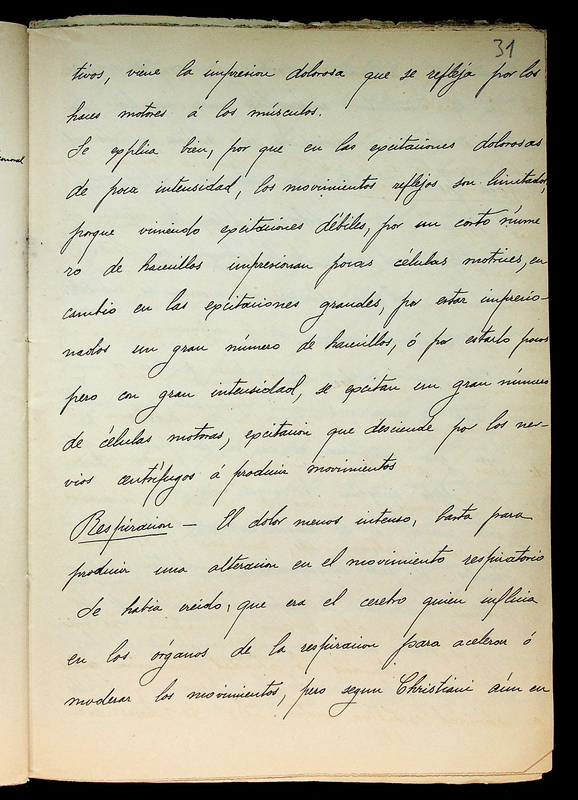 31
tivos, viene la impresion dolorosa que se refleja por los
haces motores á los músculos.
Se esplica bien, por que en las escitaciones dolorosas
de poca intensidad, los movimientos reflejos son limitados,
porque viniendo escitaciones débiles, por un corto núme
ro de hacecillos impresionan pocas células motrices, en
cambio en las escitaciones grandes, por estar impresio-
nados un gran número de hacecillos, ó por estarlo pocos
pero con gran intensidad, se escitan un gran número
de células motoras, escitacion que desciende por los ner-
vios centrífugos á producir movimientos
Respiracion - El dolor menos intenso, basta para
producir una alteracion en el movimiento respiratorio
Se habia creido, que era el cerebro quien influia
en los órganos de la respiracion para acelerar ó
moderar los movimientos, pero segun Christiani aún en